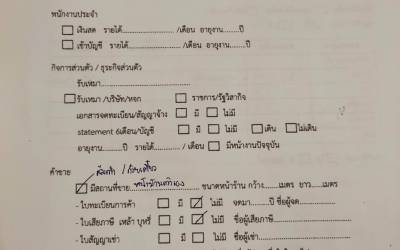 พนักงานประจำ
เงินสด รายได้........................ /เดือน อายุงาน........ปี
เข้าบัญชี รายได้........................ /เดือน อายุงาน........ปี
กิจการส่วนตัว / ธุระกิจส่วนตัว
รับเหมา........................................
รับเหมา /บริษัท/หจก ราชการ/รัฐวิสากิจ
เอกสารจดทะเบียน/สัญญาจ้าง มี ไม่มี
statement 6เดือน/บัญชี มี ไม่มี เดิน ไม่เดิน
อายุงาน........ปี รายได้................/เดือน มีหน้างานปัจจุบัน
ค้าขาย
มีสถานที่ขาย ขนาดหน้าร้าน กว้าง.......เมตร ยาว.......เมตร
- ใบทะเบียนการค้า มี ไม่มี จดมา.......ปี ชื่อผู้จด..................
- ใบเสียภาษี เหล้า บุหรี่ มี ไม่มี ชื่อผู้เสียภาษี..................
- ใบสัญญาเช่า มี ไม่มี ชื่อผู้เช่า..................